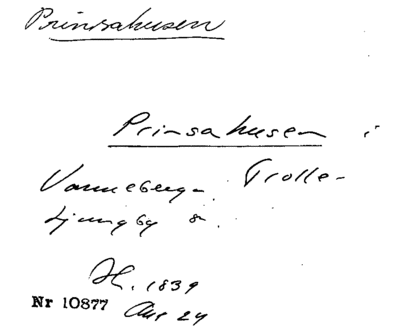 Prinsahusen
Prinsahusen i
Vanneberga. Trolle-
Ljungby s.
H. 1839
Nr 10877 Aug 24